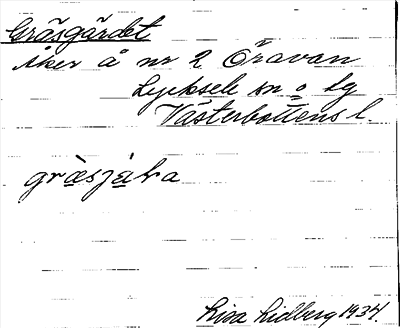 Gräsgärdet
Åker å nr 2 Öravan
Lycksele sn o lg
Västerbottens l.
Lisa Lidberg 1934.